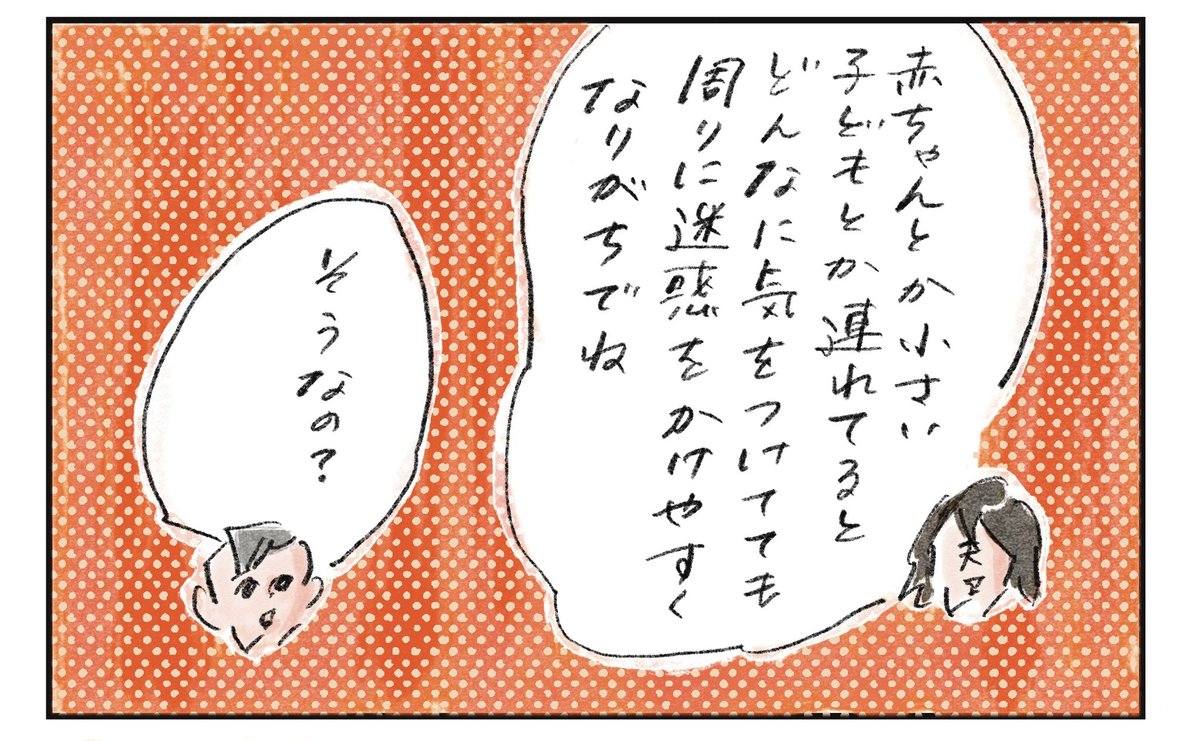 赤ちゃんとか小さい
子どもとか連れてると
どんなに気をつけてても
周りに迷惑をかけやすく
なりがちでね
そうなの？